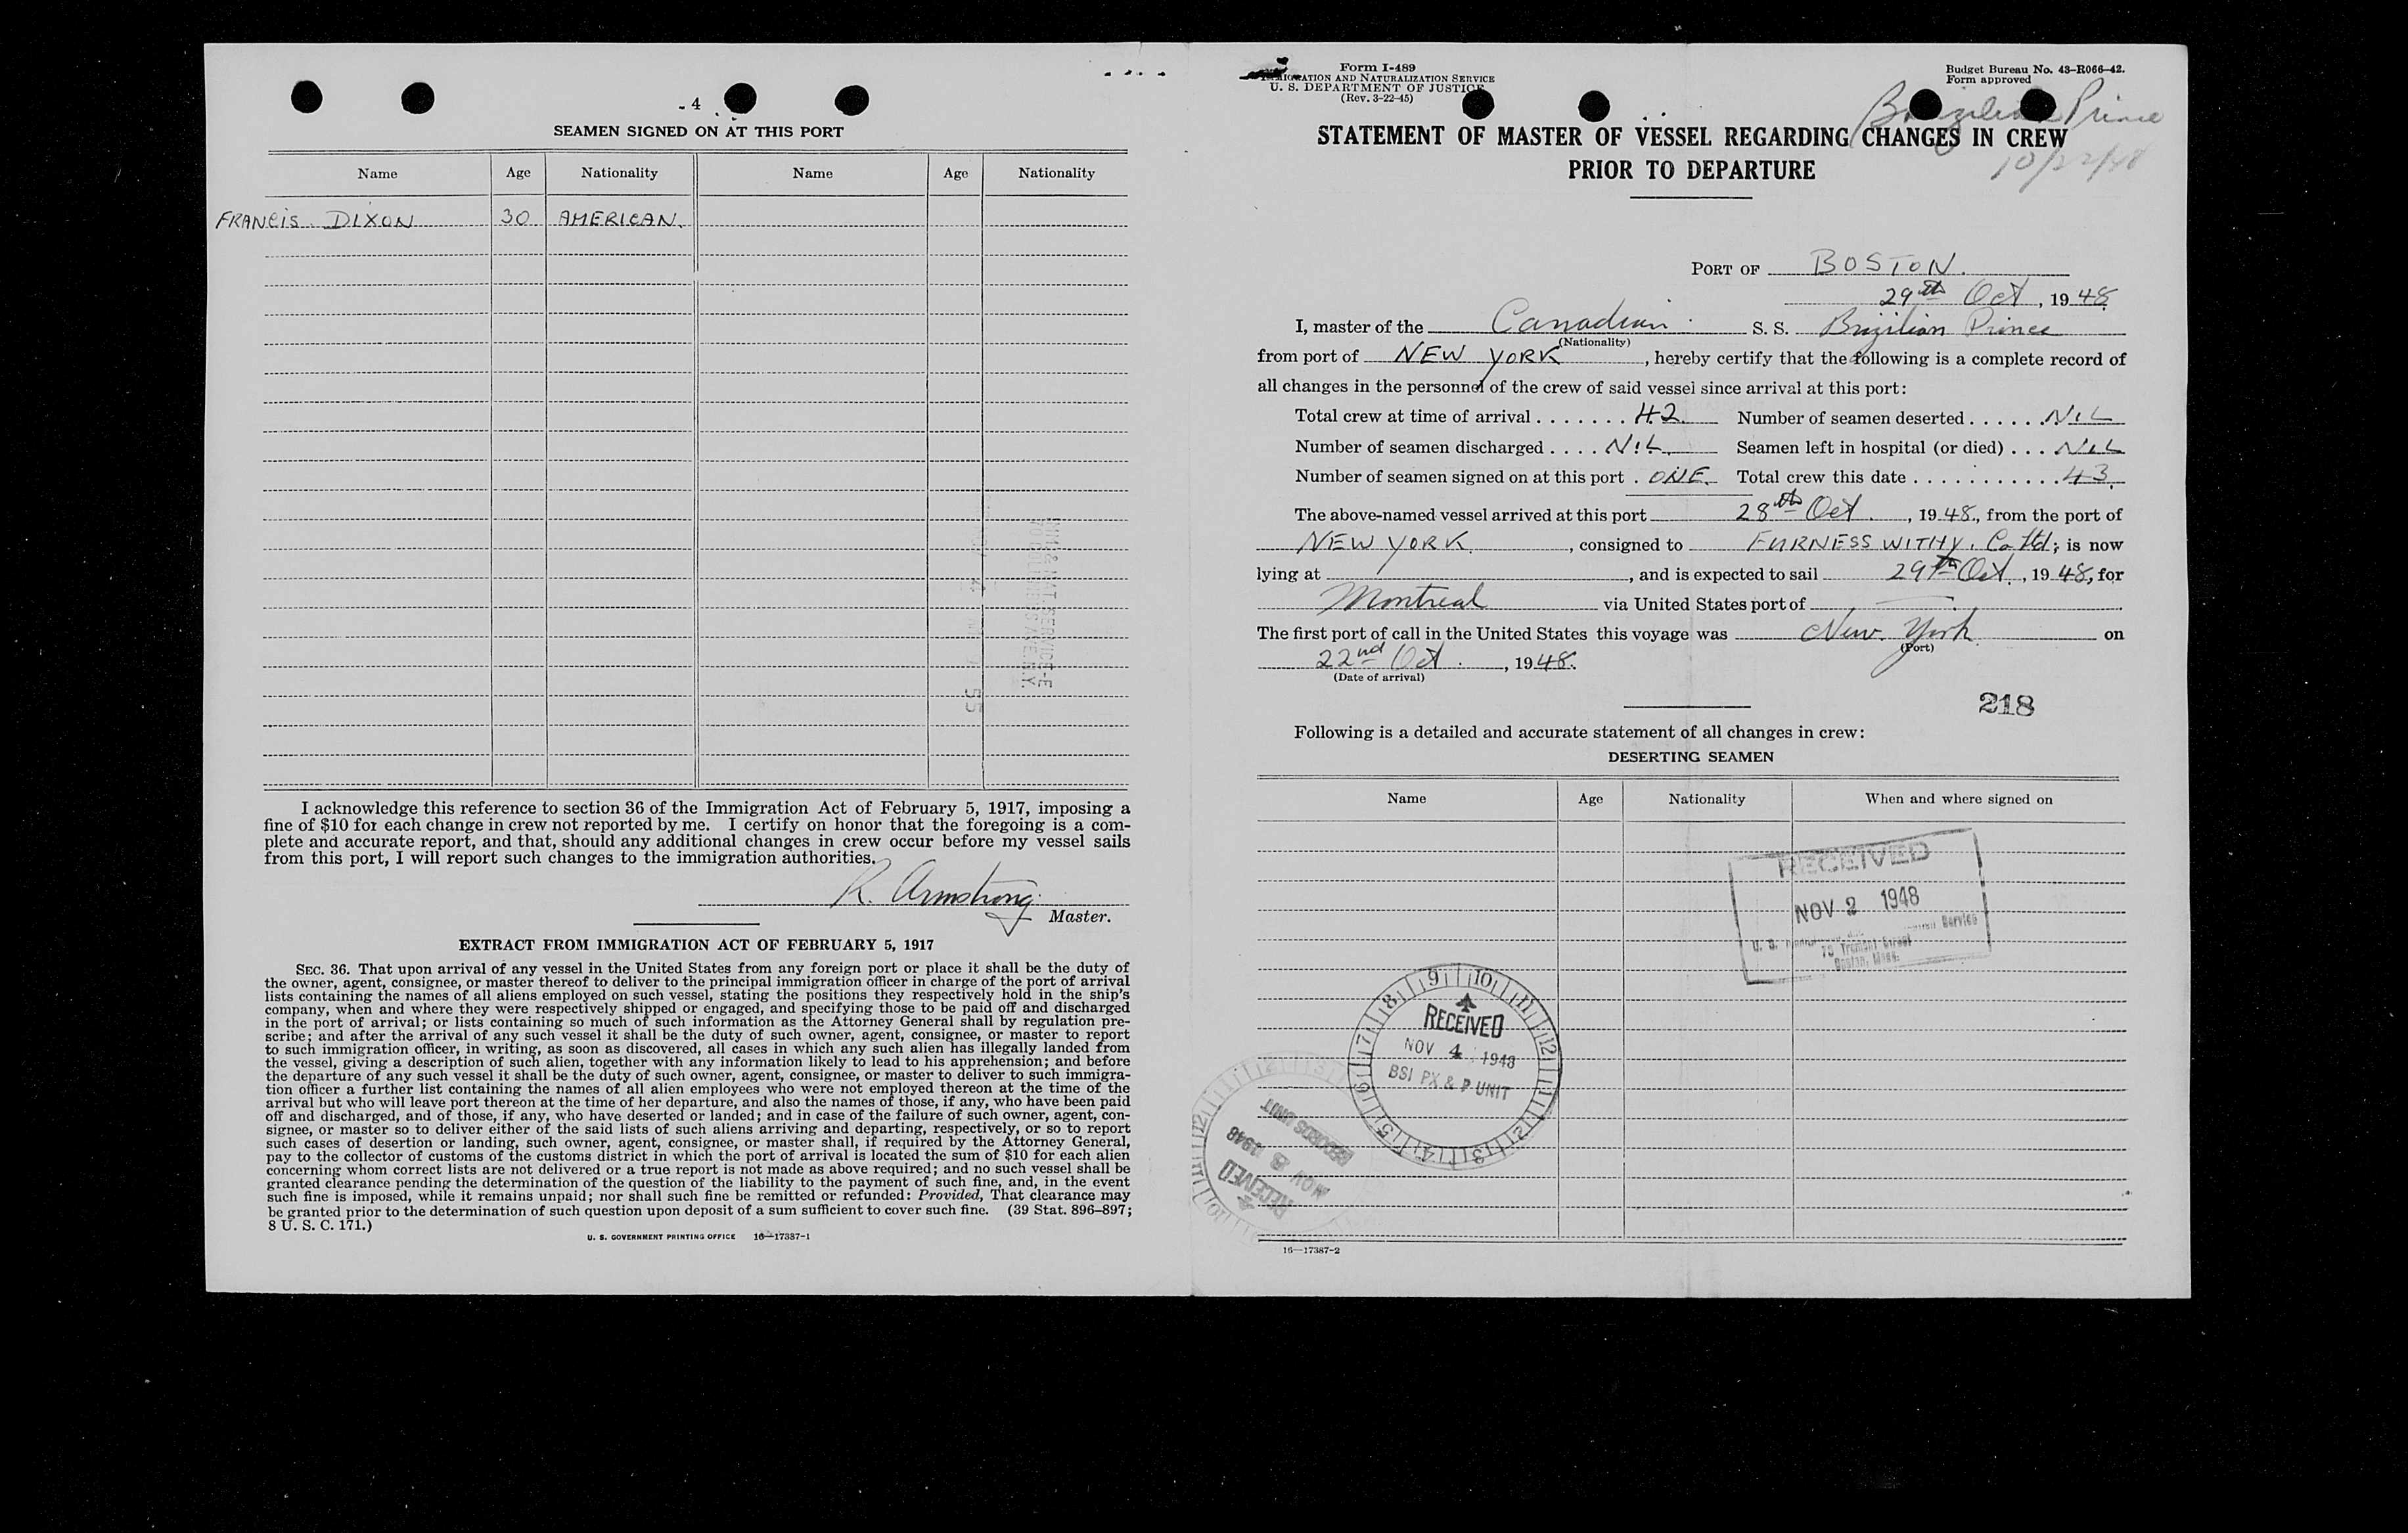 - 4
SEAMEN SIGNED ON AT THIS PORT
Name Age Nationality Name Age Nationality
FRANCIS DIXON 30 AMERICAN.
I acknowledge this reference to section 36 of the Immigration Act of February 5, 1917, imposing a
fine of $10 for each change in crew not reported by me. I certify on honor that the foregoing is a com-
plete and accurate report, and that, should any additional changes in crew occur before my vessel sails
from this port, I will report such changes to the immigration authorities.
R. Armstrong
Master.
EXTRACT FROM IMMIGRATION ACT OF FEBRUARY 5, 1917
SEC. 36. That upon arrival of any vessel in the United States from any foreign port or place it shall be the duty of
the owner, agent, consignee, or master thereof to deliver to the principal immigration officer in charge of the port of arrival
lists containing the names of all aliens employed on such vessel, stating the positions they respectively hold in the ship's
company, when and where they were respectively shipped or engaged, and specifying those to be paid off and discharged
in the port of arrival; or lists containing so much of such information as the Attorney General shall by regulation pre-
scribe; and after the arrival of any such vessel it shall be the duty of such owner, agent, consignee, or master to report
to such immigration officer, in writing, as soon as discovered, all cases in which any such alien has illegally landed from
the vessel, giving a description of such alien, together with any information likely to lead to his apprehension; and before
the departure of any such vessel it shall be the duty of such owner, agent, consignee, or master to deliver to such immigra-
tion officer a further list containing the names of all alien employees who were not employed thereon at the time of the
arrival but who will leave port thereon at the time of her departure, and also the names of those, if any, who have been paid
off and discharged, and of those, if any, who have deserted or landed; and in case of the failure of such owner, agent, con-
signee, or master so to deliver either of the said lists of such aliens arriving and departing, respectively, or so to report
such cases of desertion or landing, such owner, agent, consignee, or master shall, if required by the Attorney General,
pay to the collector of customs of the customs district in which the port of arrival is located the sum of $10 for each alien
concerning whom correct lists are not delivered or a true report is not made as above required; and no such vessel shall be
granted clearance pending the determination of the question of the liability to the payment of such fine, and, in the event
such fine is imposed, while it remains unpaid; nor shall such fine be remitted or refunded: Provided, That clearance may
be granted prior to the determination of such question upon deposit of a sum sufficient to cover such fine. (39 Stat. 896–897;
8 U. S. C. 171.)
U. S. GOVERNMENT PRINTING OFFICE 16—17387-1
Form I-489
IMMIGRATION AND NATURALIZATION SERVICE
U. S. DEPARTMENT OF JUSTICE
(Rev. 3-22-45)
Budget Bureau No. 43-R066-42.
Form approved
Brazilian Prince
10/22/48
STATEMENT OF MASTER OF VESSEL REGARDING CHANGES IN CREW
PRIOR TO DEPARTURE
PORT OF BOSTON.
29th Oct, 1948
I, master of the Canadian S. S. Brazilian Prince
(Nationality)
from port of NEW YORK, hereby certify that the following is a complete record of
all changes in the personnel of the crew of said vessel since arrival at this port:
Total crew at time of arrival ....... 42 Number of seamen deserted ...... NIL
Number of seamen discharged .... NIL. Seamen left in hospital (or died) ... NIL
Number of seamen signed on at this port . ONE. Total crew this date ............ 43.
The above-named vessel arrived at this port 28th Oct., 1948., from the port of
NEW YORK., consigned to FURNESS WITHY. Co Ltd; is now
lying at , and is expected to sail 29th Oct., 1948, for
Montreal via United States port of —
The first port of call in the United States this voyage was New York on
(Port)
22nd Oct., 1948.
(Date of arrival)
218
Following is a detailed and accurate statement of all changes in crew:
DESERTING SEAMEN
Name Age Nationality When and where signed on
RECEIVED
NOV 2 1948
U. S. Service
73 Tremont Street
Boston, Mass.
9 10 11 12 1 2 3 4 5 6 7 8
RECEIVED
NOV 4 1948
BSI PX & P UNIT
RECORDS UNIT
NOV 8 1948
RECEIVED
16—17387-2